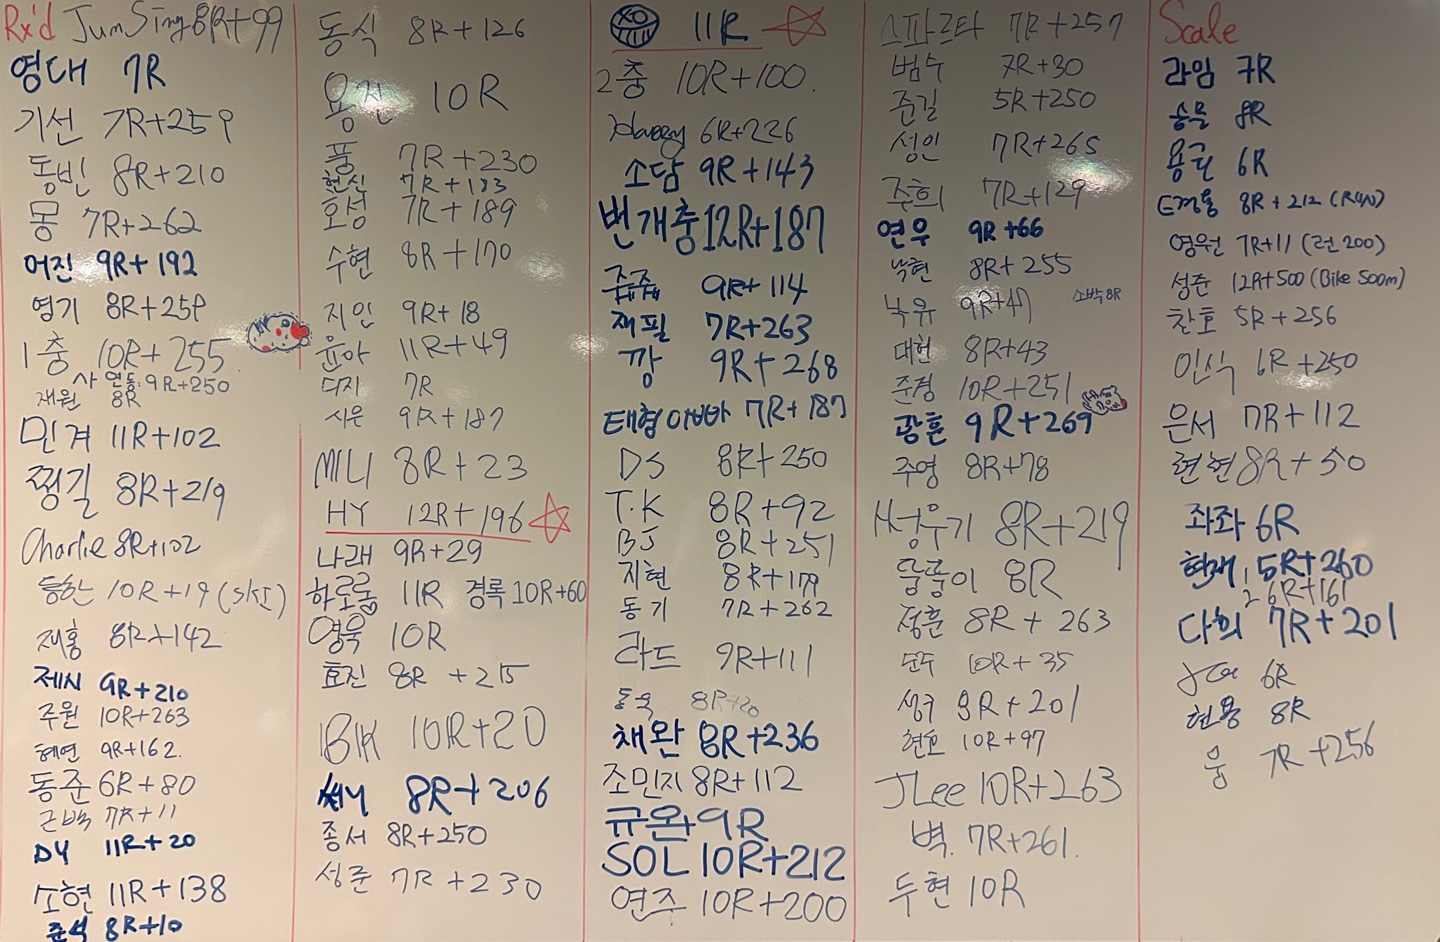 Rx'd JunSing 8R+99
영대 7R
기선 7R+259
동빈 8R+210
몽 7R+262
어진 9R+192
영기 8R+259
1충 10R+255
사 연동: 9R+250
재원 8R
민겨 11R+102
찡길 8R+219
Charlie 8R+102
동한 10R+19 (SKI)
재홍 8R+142
제시 9R+210
주원 10R+263
혜연 9R+162
동준 6R+80
근백 7R+11
DY 11R+20
소현 11R+138
준석 8R+10
동식 8R+126
용진 10R
풍 7R+230
현식 7R+183
호성 7R+189
수현 8R+170
지인 9R+18
윤아 11R+49
디지 7R
시은 9R+187
MLLI 8R+23
HY 12R+196
나래 9R+29
하로롱 11R 경록 10R+60
영욱 10R
효진 8R+215
BK 10R+20
8R+206
종서 8R+250
성준 7R+230
XO 11R
2충 10R+100.
Harry 6R+226
소담 9R+143
번개충 12R+187
쭌쭌 9R+114
재필 7R+263
깡 9R+268
태형이아빠 7R+187
DS 8R+250
T.K 8R+92
BJ 8R+251
지현 8R+179
동기 7R+262
라드 9R+111
동욱 8R+20
채완 8R+236
조민지 8R+112
규완 9R
SOL 10R+212
연주 10R+200
스파르타 7R+257
범수 7R+30
준길 5R+250
성인 7R+265
주희 7R+129
연우 9R+66
낙현 8R+255
낙유 9R+47 소박 8R
대헌 8R+43
준경 10R+251
광훈 9R+269
주영 8R+78
서성우기 8R+219
뚱뚱이 8R
정훈 8R+263
순주 10R+35
성구 8R+201
현호 10R+97
JLee 10R+263
벽. 7R+261.
두현 10R
Scale
라임 7R
승물 8R
용근 6R
E경용 8R+212 (Row)
영원 7R+11 (런 200)
성준 12R+500 (Bike 500m)
찬호 5R+256
인식 6R+250
은서 7R+112
련현 8R+50
좌좌 6R
현재 1. 5R+260
2 6R+161
다희 7R+201
6R
현용 8R
웅 7R+256